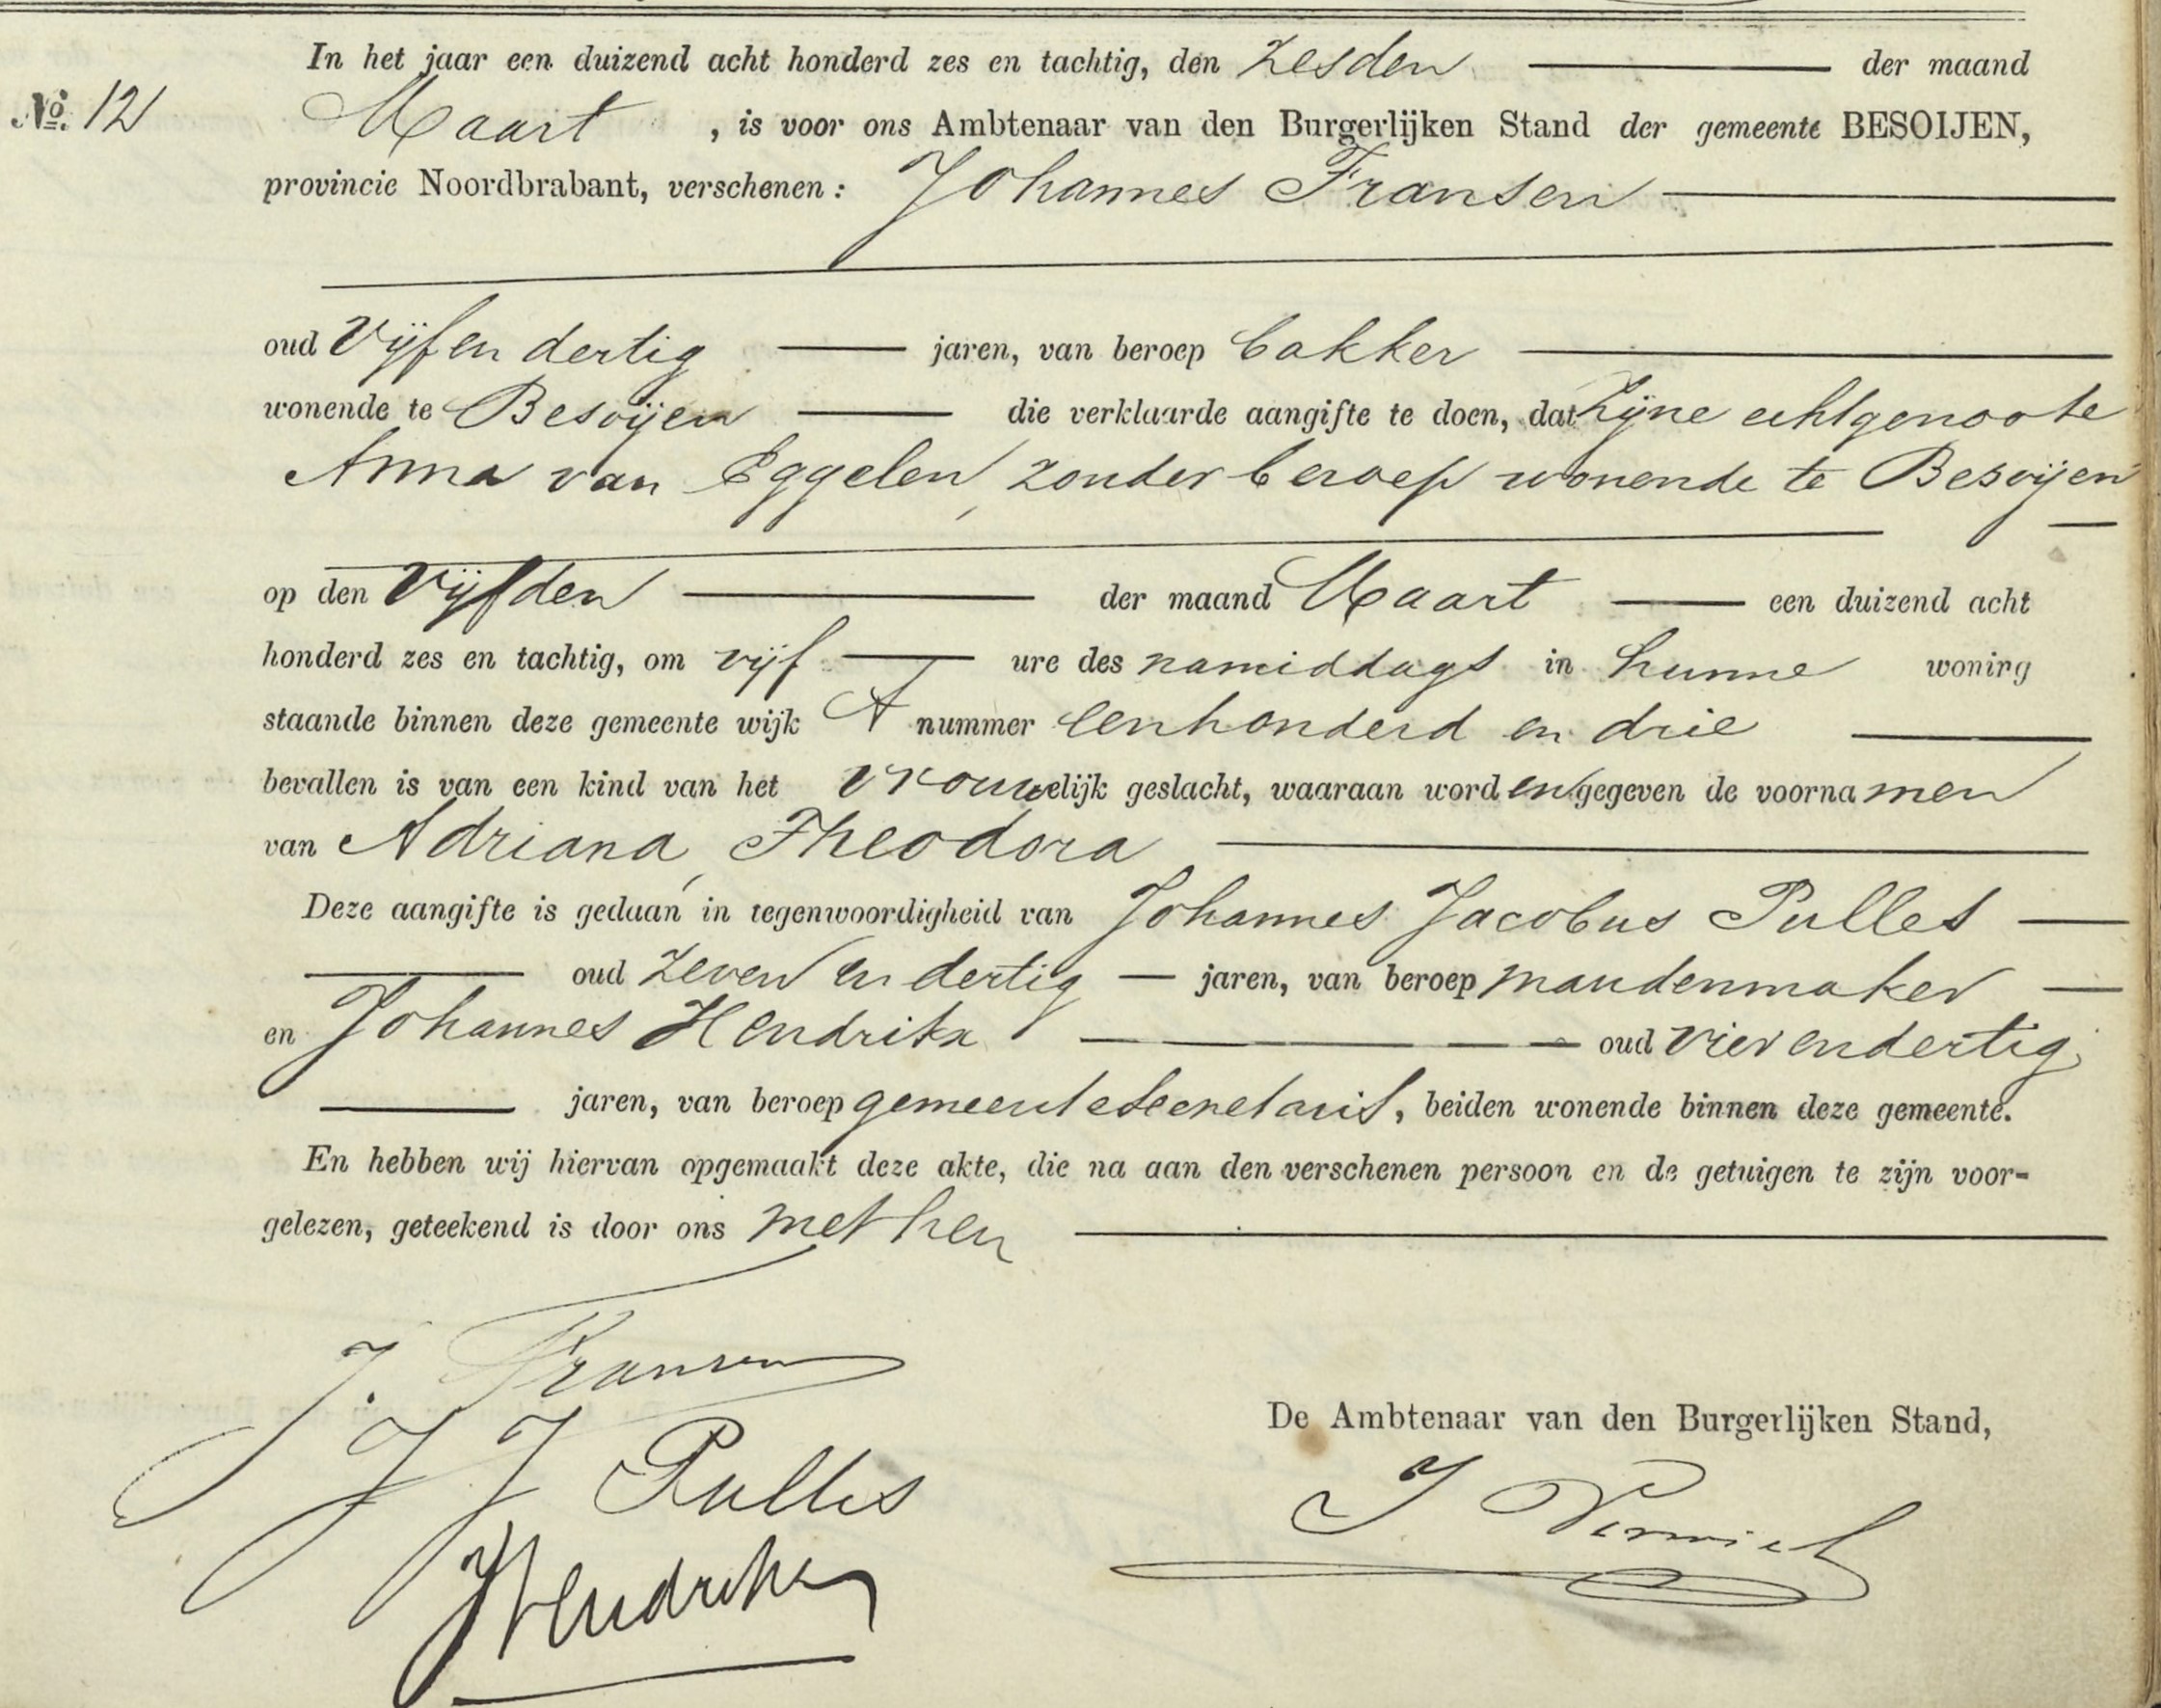 In het jaar een duizend acht honderd zes en tachtig, den zesden der maand
No. 12 Maart, is voor ons Ambtenaar van den Burgerlijken Stand der gemeente BESOIJEN,
provincie Noordbrabant, verschenen: Johannes Fransen
oud Vijf en dertig jaren, van beroep bakker
wonende te Besoijen die verklaarde aangifte te doen, dat zijne echtgenoote
Anna van Eggelen, zonder beroep wonende te Besoijen
op den Vijfden der maand Maart een duizend acht
honderd zes en tachtig, om vijf ure des namiddags in hunne woning
staande binnen deze gemeente wijk A nummer eenhonderd en drie
bevallen is van een kind van het vrouwelijk geslacht, waaraan worden gegeven de voornamen
van Adriana, Theodora
Deze aangifte is gedaan in tegenwoordigheid van Johannes Jacobus Pulles
oud zeven en dertig jaren, van beroep mandenmaker
en Johannes Hendrikx oud vier en dertig
jaren, van beroep gemeentesecretaris, beiden wonende binnen deze gemeente.
En hebben wij hiervan opgemaakt deze akte, die na aan den verschenen persoon en de getuigen te zijn voor-
gelezen, geteekend is door ons met hen
J. Fransen
De Ambtenaar van den Burgerlijken Stand,
J J Pulles
J
JHendrikx